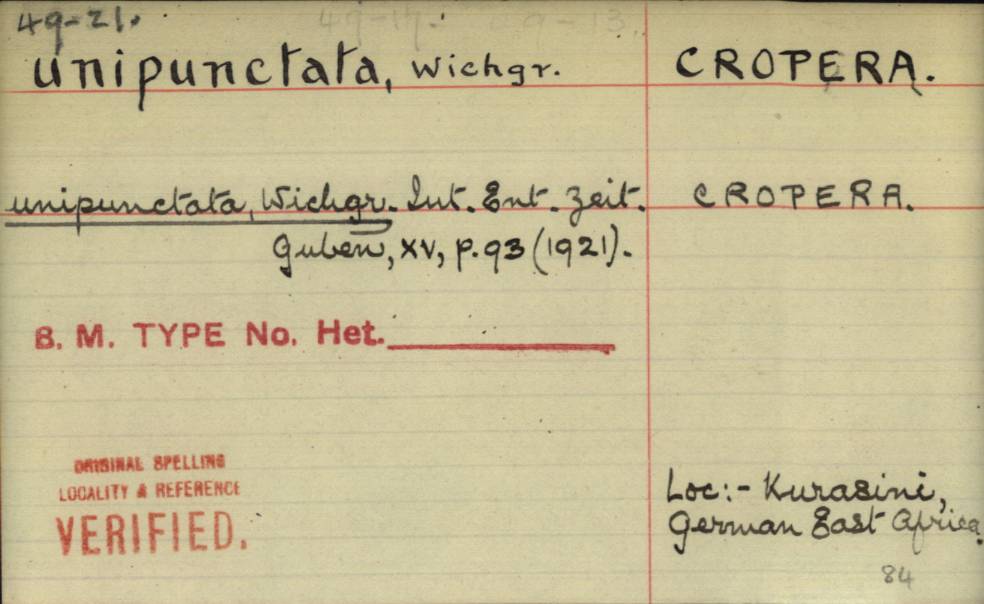 49-21.
unipunctata, Wichgr. CROPERA.
unipunctata, Wichgr. Int. Ent. Zeit. CROPERA.
Guben, XV, p. 93 (1921).
B. M. TYPE No. Het.
ORIGINAL SPELLING
LOCALITY & REFERENCE
VERIFIED.
Loc:- Kurasini,
German East Africa.
84